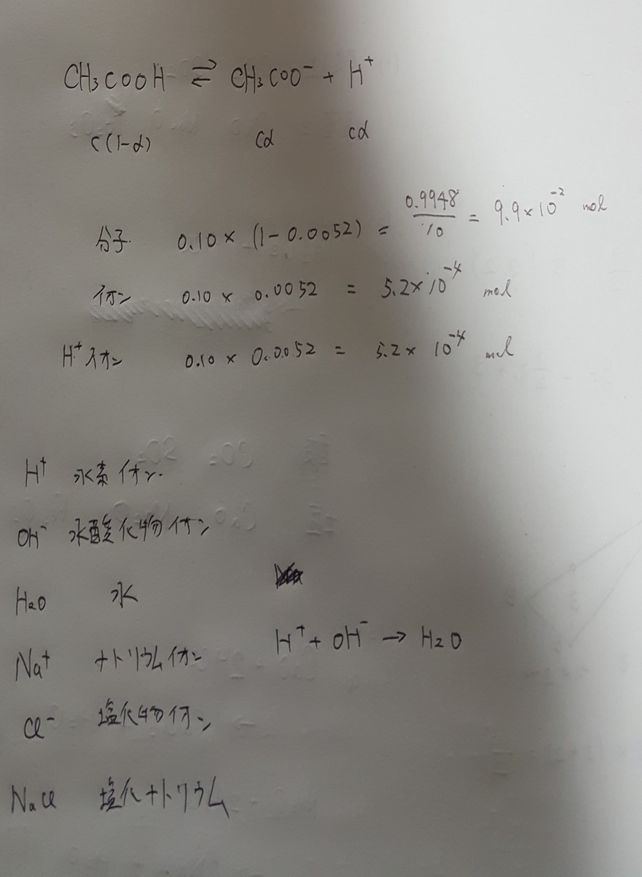 CH3COOH ⇄ CH3COO⁻ + H⁺
C(1-α) Cα Cα
分子 0.10 × (1-0.0052) = 0.9948/10 = 9.9×10⁻² mol
イオン 0.10 × 0.0052 = 5.2×10⁻⁴ mol
H⁺イオン 0.10 × 0.0052 = 5.2 × 10⁻⁴ mol
H⁺ 水素イオン
OH⁻ 水酸化物イオン
H2O 水
H⁺ + OH⁻ → H2O
Na⁺ ナトリウムイオン
Cl⁻ 塩化物イオン
NaCl 塩化ナトリウム